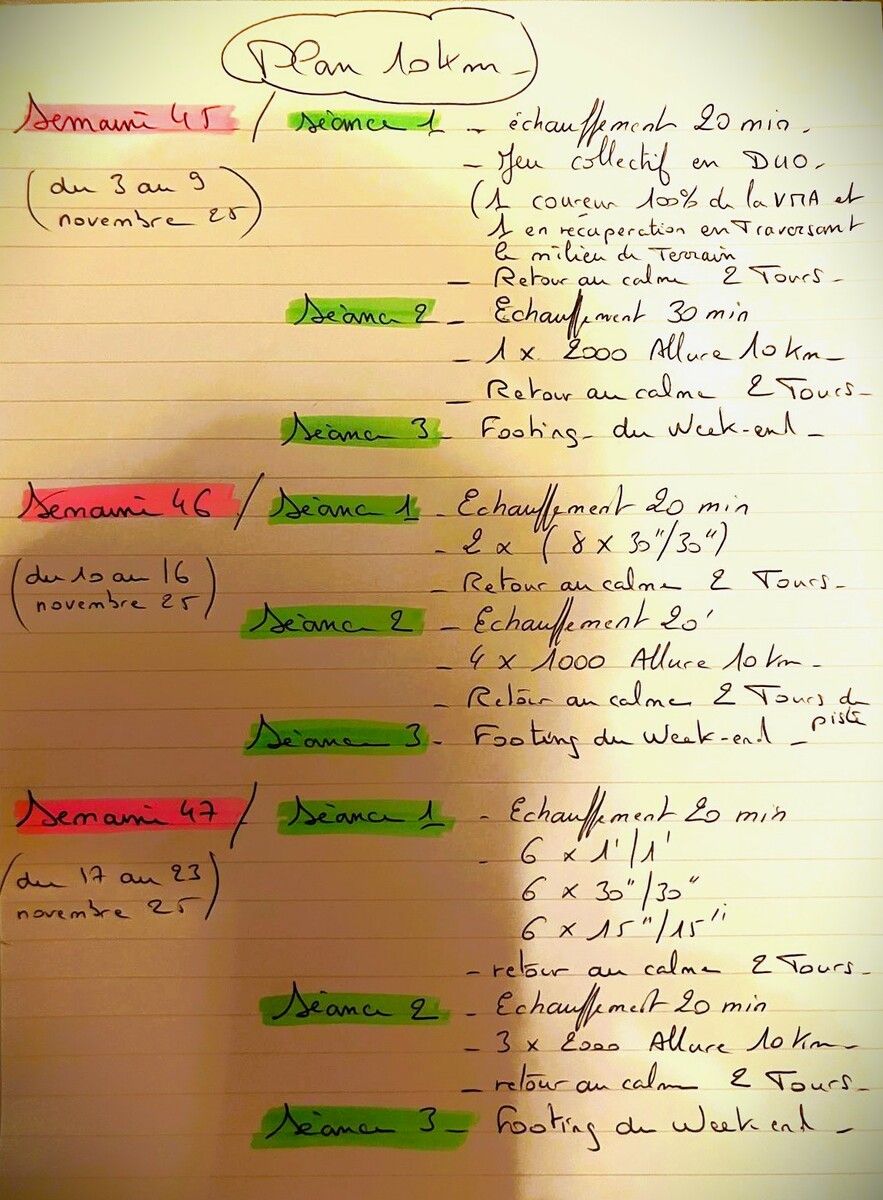 Plan 10km_
Semaine 45 / Séance 1 - échauffement 20 min.
(du 3 au 9
novembre 25)
- Jeu collectif en DUO.
(1 coureur 100% de la VMA et
1 en récuperation en Traversant
le milieu de Terrain
- Retour au calme 2 Tours -
Séance 2 - Echauffement 30 min
- 1 x 2000 Allure 10 km -
- Retour au calme 2 Tours -
Séance 3 - Footing - du Week-end -
Semaine 46 / Séance 1 - Echauffement 20 min
(du 10 au 16
novembre 25)
- 2 x (8 x 30"/30")
- Retour au calme 2 Tours -
Séance 2 - Echauffement 20'
- 4 x 1000 Allure 10 km -
- Retour au calme 2 Tours de
piste
Séance 3 - Footing du Week-end -
Semaine 47 / Séance 1 - Echauffement 20 min
(du 17 au 23
novembre 25)
- 6 x 1'/1'
6 x 30"/30"
6 x 15"/15"
- retour au calme 2 Tours -
Séance 2 - Echauffement 20 min
- 3 x 2000 Allure 10 Km -
- retour au calme 2 Tours -
Séance 3 - Footing du Week end -